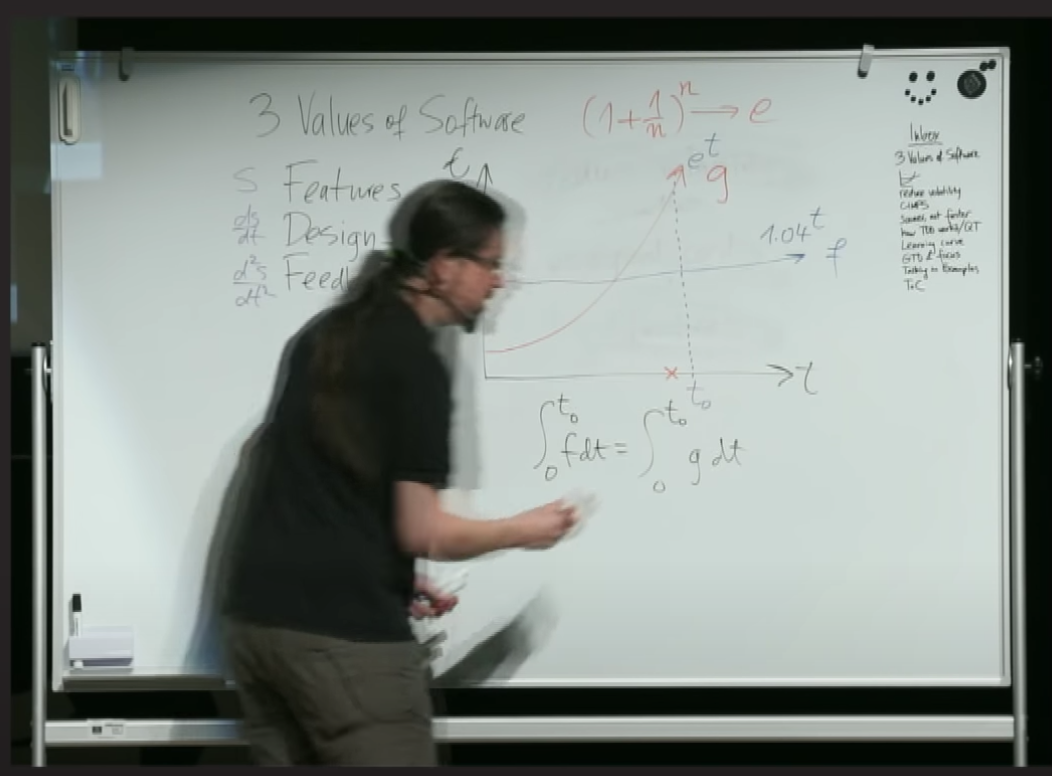 3 Values of Software
(1+1/n)^n → e
S Features
ds/dt Design
d²s/dt² Feed
€
e^t
g
1.04^t
f
t
×
t₀
∫₀^t₀ fdt = ∫₀^t₀ g dt
Inbox
3 Values of Software
reduce volatility
Sooner, not faster
how TDD works/QT
Learning curve
GTD & focus
Talking in Examples
ToC